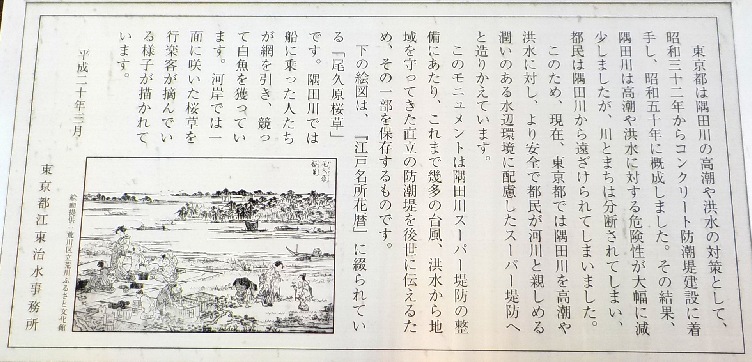 東京都は隅田川の高潮や洪水の対策として、
昭和三十二年からコンクリート防潮堤建設に着
手し、昭和五十年に概成しました。その結果、
隅田川は高潮や洪水に対する危険性が大幅に減
少しましたが、川とまちは分断されてしまい、
都民は隅田川から遠ざけられてしまいました。
このため、現在、東京都では隅田川を高潮や
洪水に対し、より安全で都民が河川と親しめる
潤いのある水辺環境に配慮したスーパー堤防へ
と造りかえています。
このモニュメントは隅田川スーパー堤防の整
備にあたり、これまで幾多の台風、洪水から地
域を守ってきた直立の防潮堤を後世に伝えるた
め、その一部を保存するものです。
下の絵図は、『江戸名所花暦』に綴られてい
る「尾久原桜草」
です。隅田川では
船に乗った人たち
が網を引き、競っ
て白魚を獲ってい
ます。河岸では一
面に咲いた桜草を
行楽客が摘んでい
る様子が描かれて
います。
平成二十年三月
絵画提供 荒川区立荒川ふるさと文化館
東京都江東治水事務所